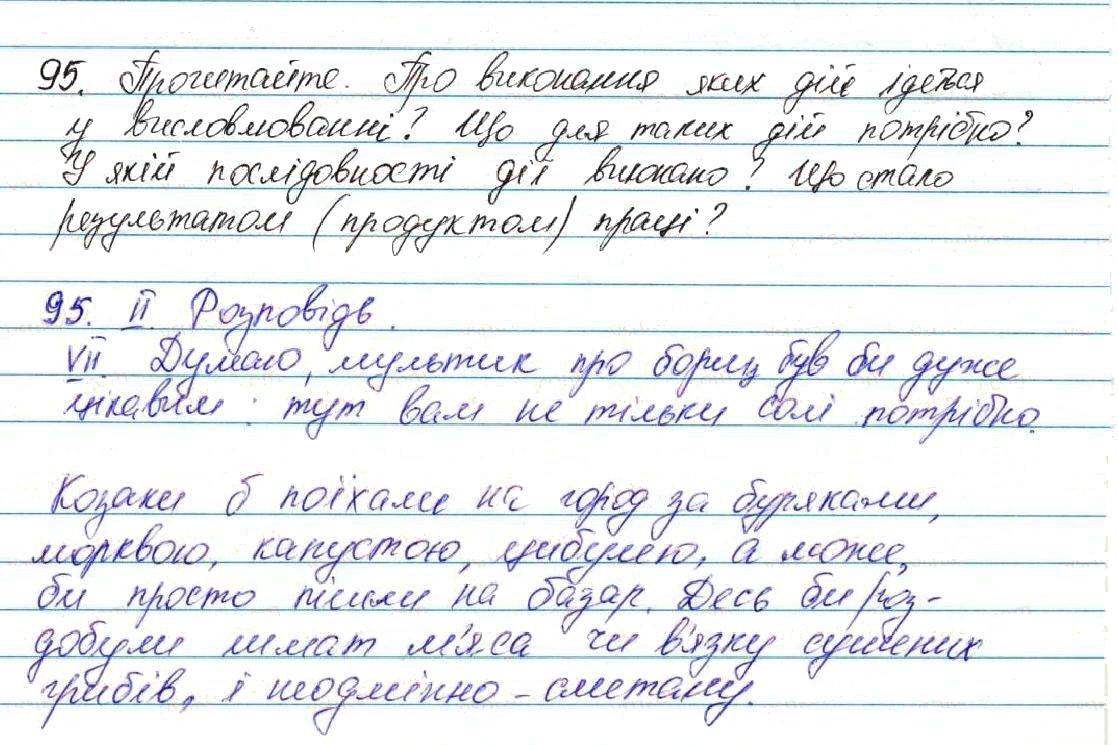 95. Прочитайте. Про виконання яких дій ідеться
у висловлюванні? Що для таких дій потрібно?
У якій послідовності дії виконано? Що стало
результатом (продуктом) праці?
95. II Розповідь.
VII Думаю, мультик про борщ був би дуже
цікавим: тут вам не тільки солі потрібно.
Козаки б поїхали на город за буряками,
морквою, капустою, цибулею, а може,
би просто пішли на базар. Десь би роз-
добули шмат м'яса чи в'язку сушених
грибів, і неодмінно - сметану.